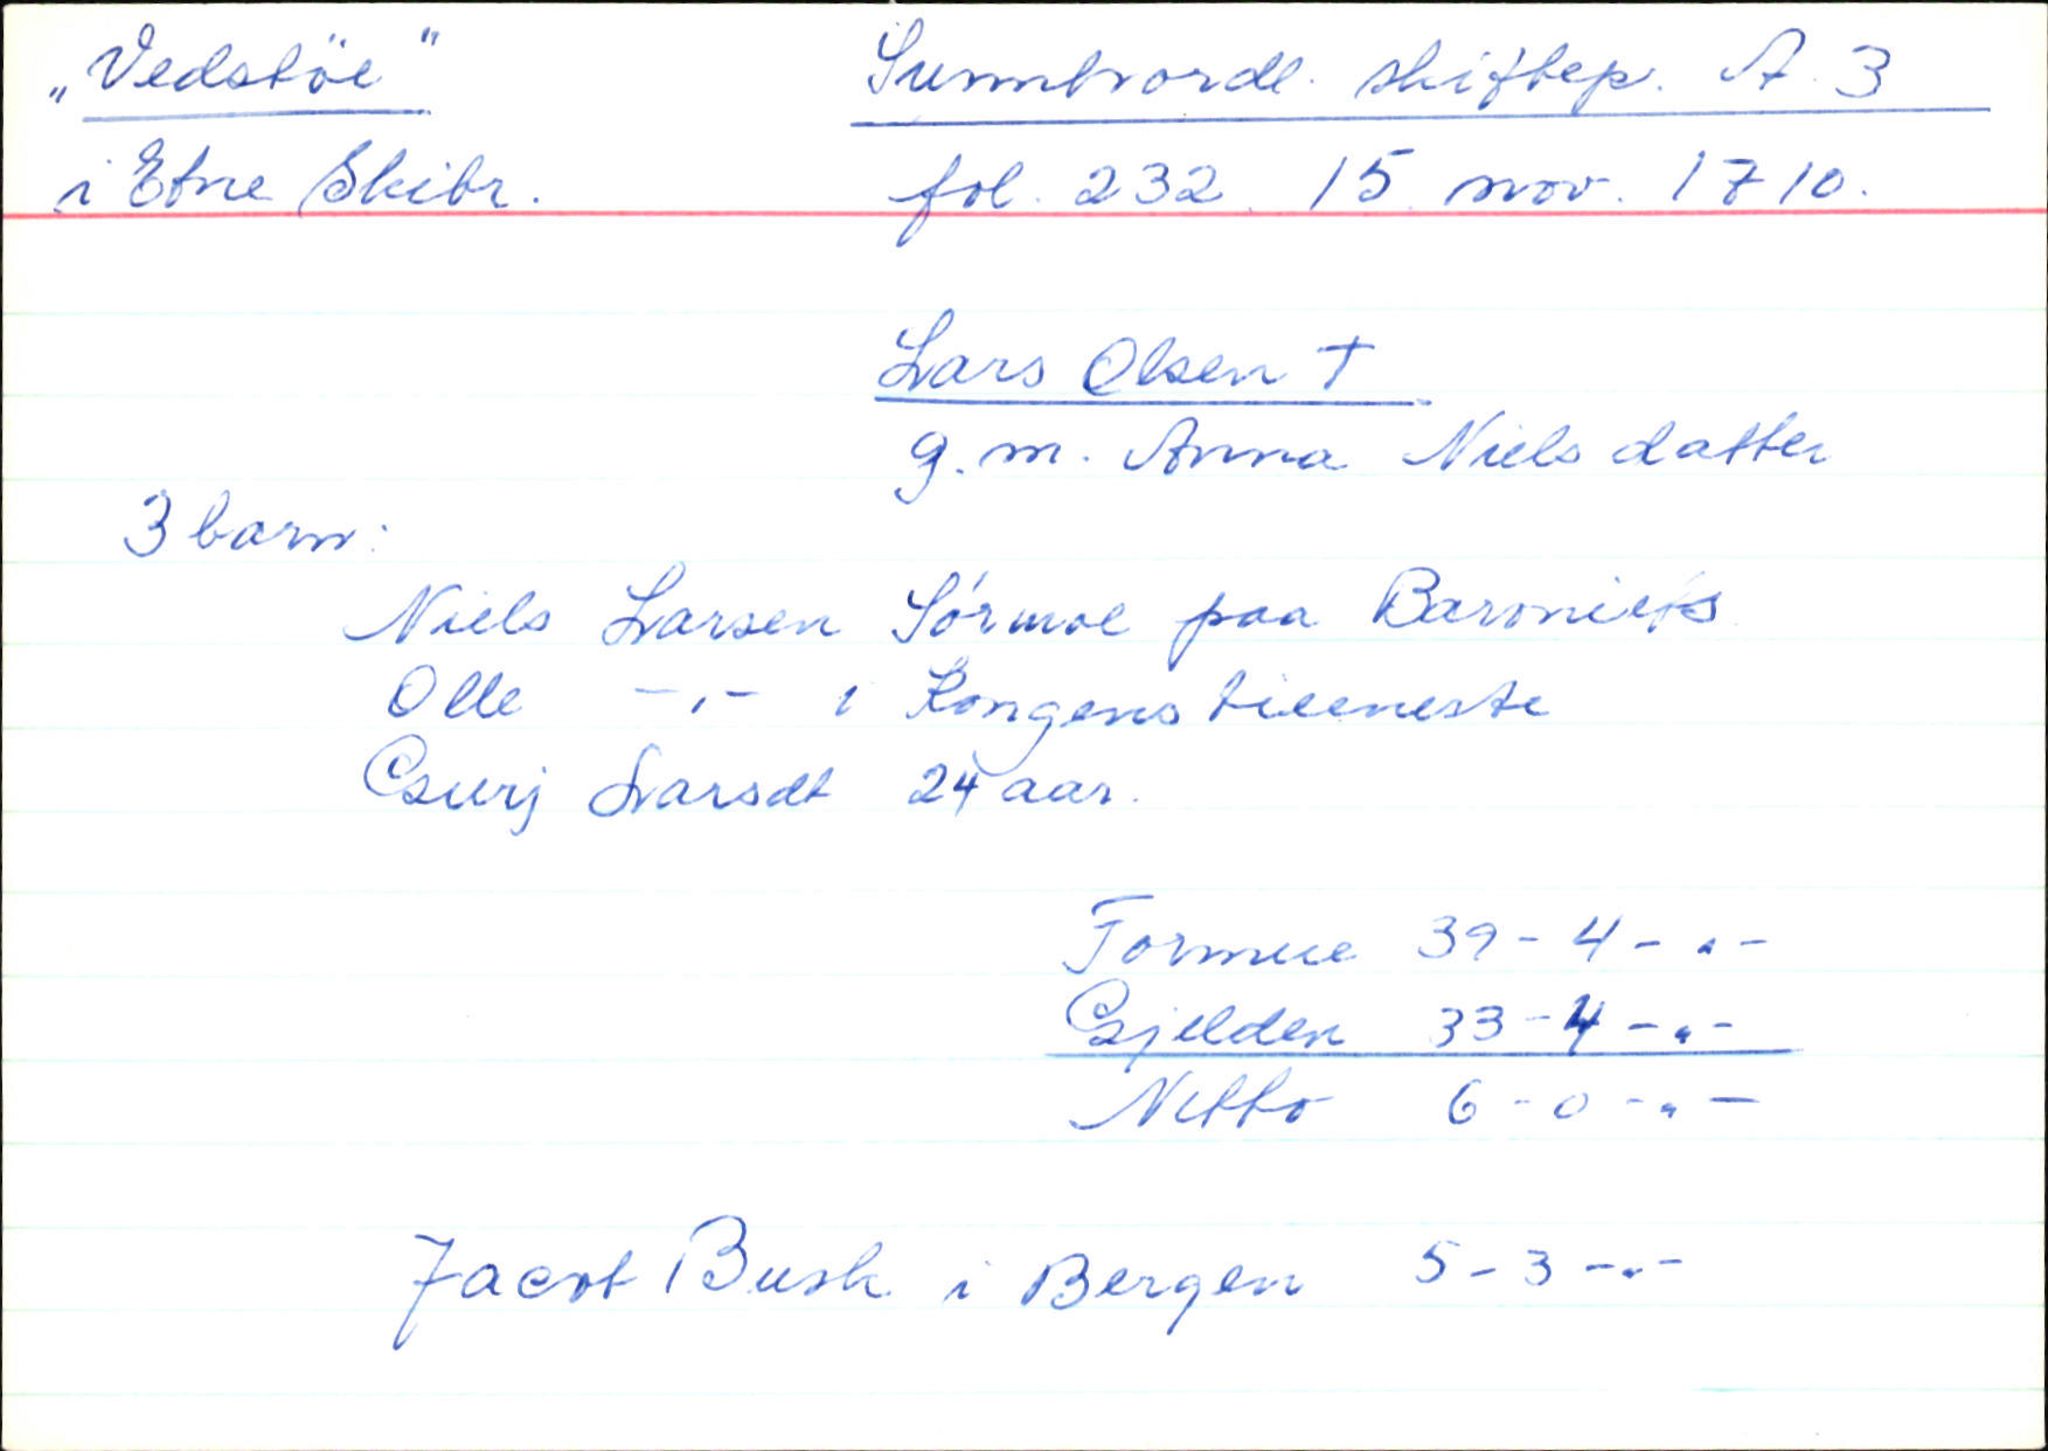 „Vedstöe“ Sunnhordl. skiftep. A. 3
i Etne Skibr. fol. 232. 15 nov. 1710.
Lars Olsen †
g. m. Anna Nielsdatter
3 barn:
Niels Larsen Sörmoe paa Baroniets
Olle -„- i Kongens tieeneste
Gurj Larsdt 24 aar.
Formue 39 - 4 - „ -
Gjelden 33 - 4 - „ -
Netto 6 - 0 - „ -
Jacob Busk i Bergen 5 - 3 - „ -